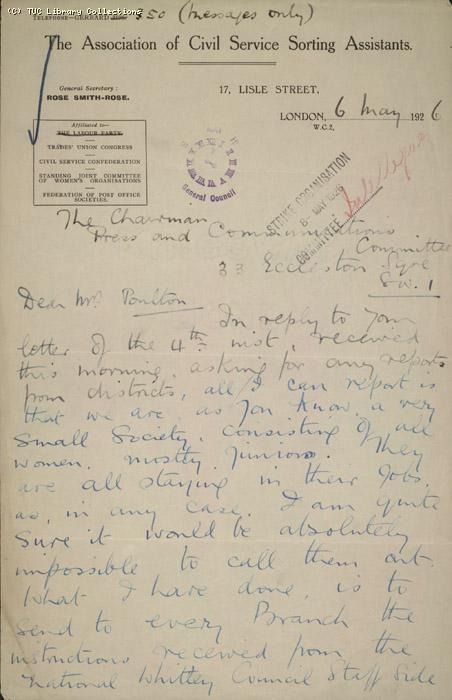 (C) TUC Library Collections
TELEPHONE—GERRARD 350 (messages only)
The Association of Civil Service Sorting Assistants.
General Secretary:
ROSE SMITH-ROSE.
17, LISLE STREET,
LONDON, 6 May 1926
W.C.2,
Affiliated to—
THE LABOUR PARTY.
TRADES' UNION CONGRESS
CIVIL SERVICE CONFEDERATION
STANDING JOINT COMMITTEE OF WOMEN'S ORGANISATIONS
FEDERATION OF POST OFFICE SOCIETIES.
General Council
STRIKE ORGANISATION
8 MAY 1926
COMMITTEE
The Chairman
Press and Communications
Committee
33 Eccleston Sqre
S.W.1
Dear Mr. Poulton
In reply to your
letter of the 4th inst, received
this morning, asking for any reports
from districts, all I can report is
that we are, as you know, a very
small Society, consisting of all
women, mostly juniors. They
are all staying in their jobs,
as, in any case, I am quite
sure it would be absolutely
impossible to call them out.
What I have done, is to
send to every Branch the
instructions received from the
National Whitley Council Staff Side